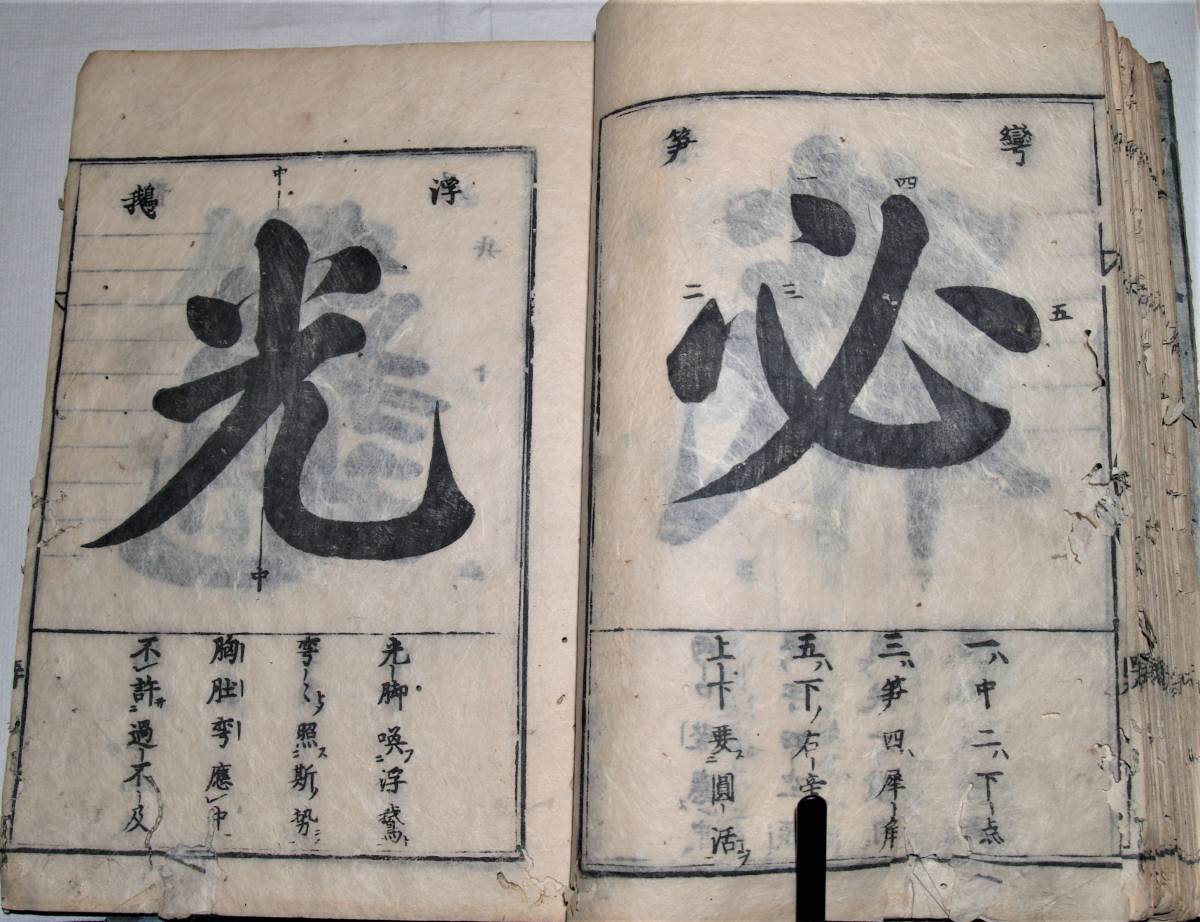 彎筍
必
一
二
三
四
五
一ハ中二ハ下点
三ハ筍四ハ犀角
五ハ下ノ右
上下要ス圓活
浮鵞
中
光
中
光脚喚フ浮鵞ト
彎照ス斯ノ勢
胸肚彎應中
不許過不及